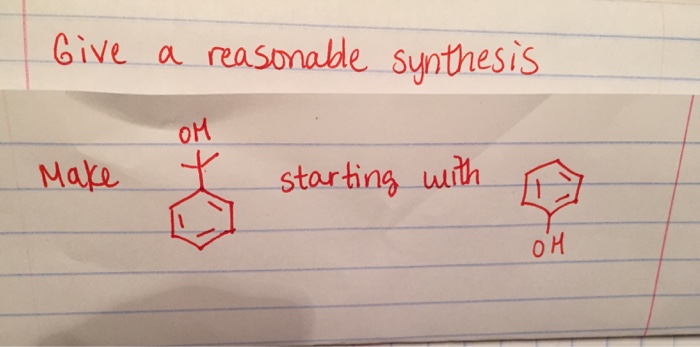 Give a reasonable synthesis
OH
Make starting with
OH